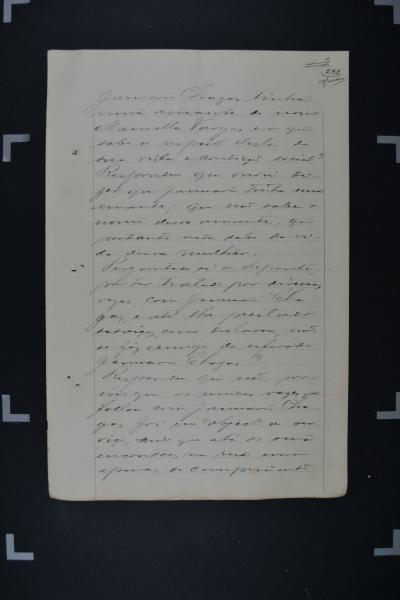 232
Januario Chagas tinha
uma amante de nome
Marcella Vargas e o que
sabe a respeito desta, de
sua vida e condição social?
Respondeu que ouviu di-
zer que Januario tinha uma
amante; que não sabe o
nome dessa amante, que
portanto nada sabe da vi-
da dessa mulher.
Perguntado se o depoente,
por ter tratado por diversas
vezes, com Januario Cha-
gas, e até lhe prestado
serviços, como declarou, não
se fez amigo do referido
Januario Chagas?
Respondeu que não, por-
que as unicas vezes que
fallou com Januario Cha-
gas foi em objecto de ser-
viço, que até os seus
encontros na rua eram
apenas de comprimento